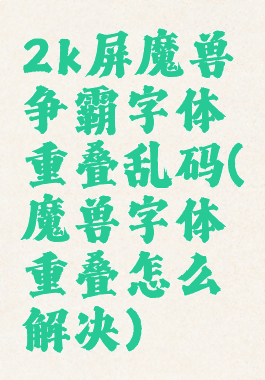 2k屏魔兽
争霸字体
重叠乱码(
魔兽字体
重叠怎么
解决)